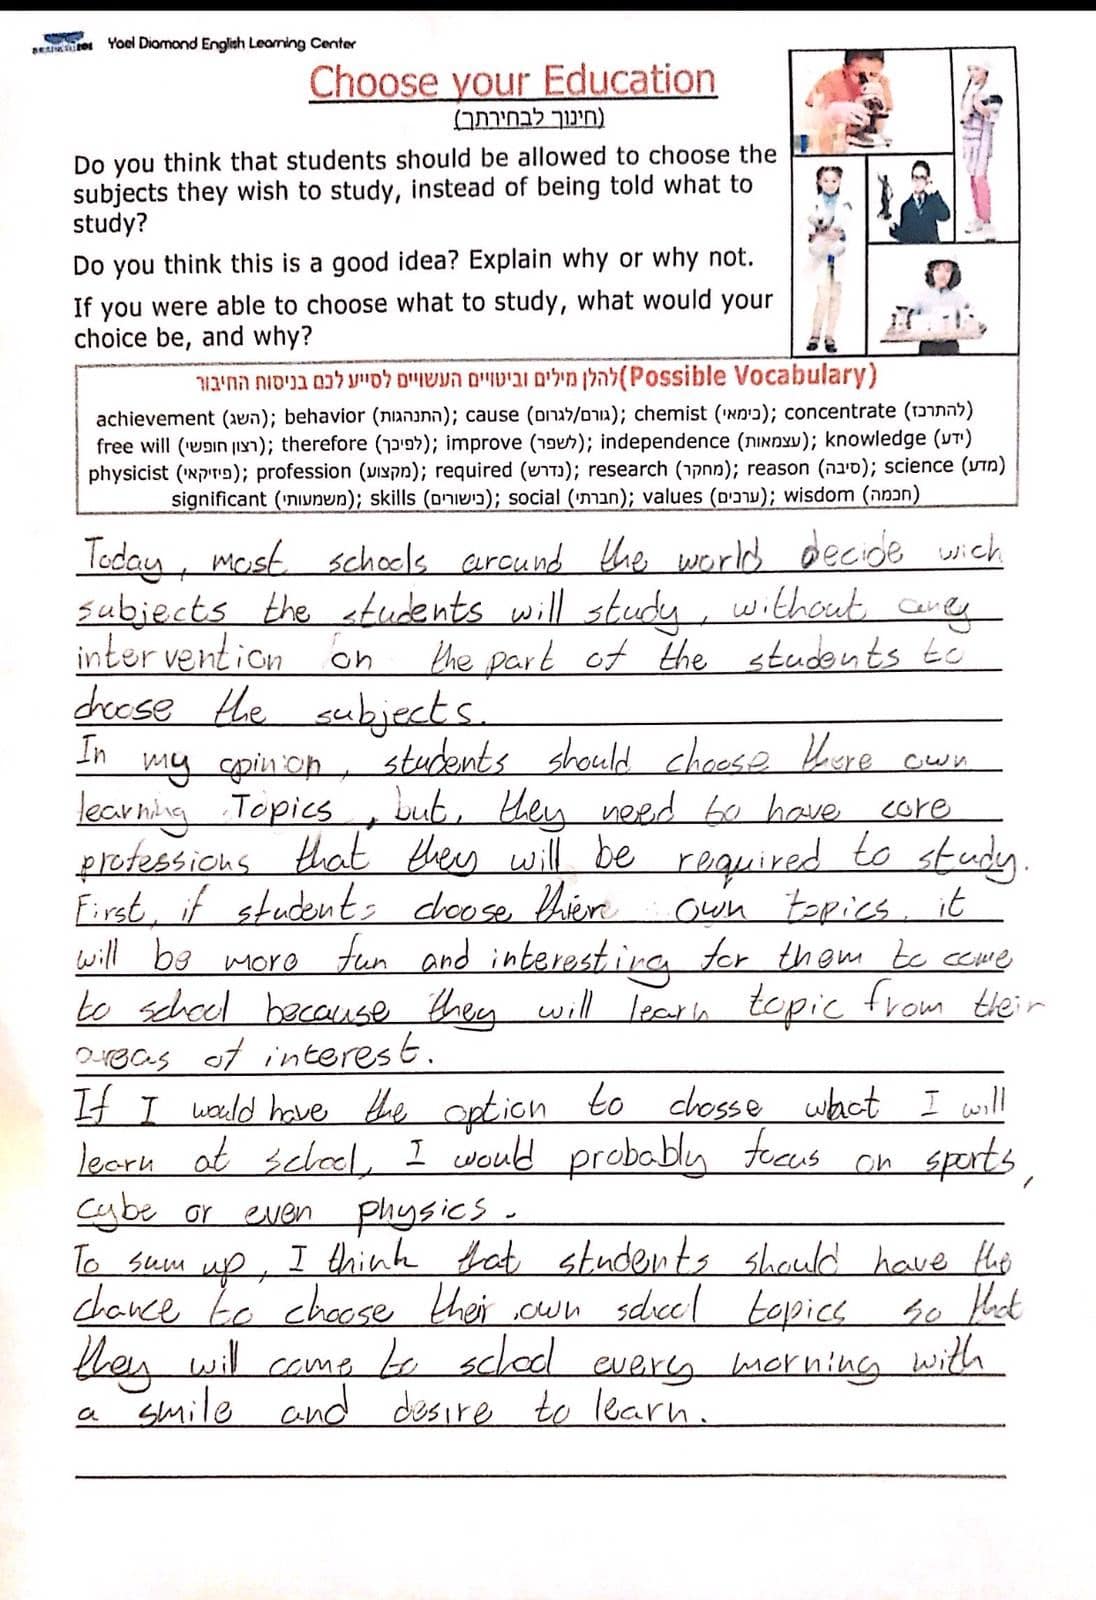 Yael Diamond English Learning Center
Choose your Education
(חינוך לבחירתך)
Do you think that students should be allowed to choose the
subjects they wish to study, instead of being told what to
study?
Do you think this is a good idea? Explain why or why not.
If you were able to choose what to study, what would your
choice be, and why?
להלן מילים וביטויים העשויים לסייע לכם בניסוח החיבור(Possible Vocabulary)
achievement (השג); behavior (התנהגות); cause (גורם/לגרום); chemist (כימאי); concentrate (להתרכז)
free will (רצון חופשי); therefore (לפיכך); improve (לשפר); independence (עצמאות); knowledge (ידע)
physicist (פיזיקאי); profession (מקצוע); required (נדרש); research (מחקר); reason (סיבה); science (מדע)
significant (משמעותי); skills (כישורים); social (חברתי); values (ערכים); wisdom (חכמה)
Today, most schools around the world decide wich
subjects the students will study, without
intervention on the part of the students to
choose the subjects.
In my opinion, students should choose there own
learning Topics, but, they need to have core
professions that they will be required to study.
First, if students choose own topics, it
will be more fun and interesting for them to come
to school because they will learn topic from their
areas of interest.
If I would have the option to chosse what I will
learn at school, I would probably focus on sports,
cybe or even physics.
To sum up, I think that students should have the
chance to choose their own school topics so that
they will come to school every morning with
a smile and desire to learn.